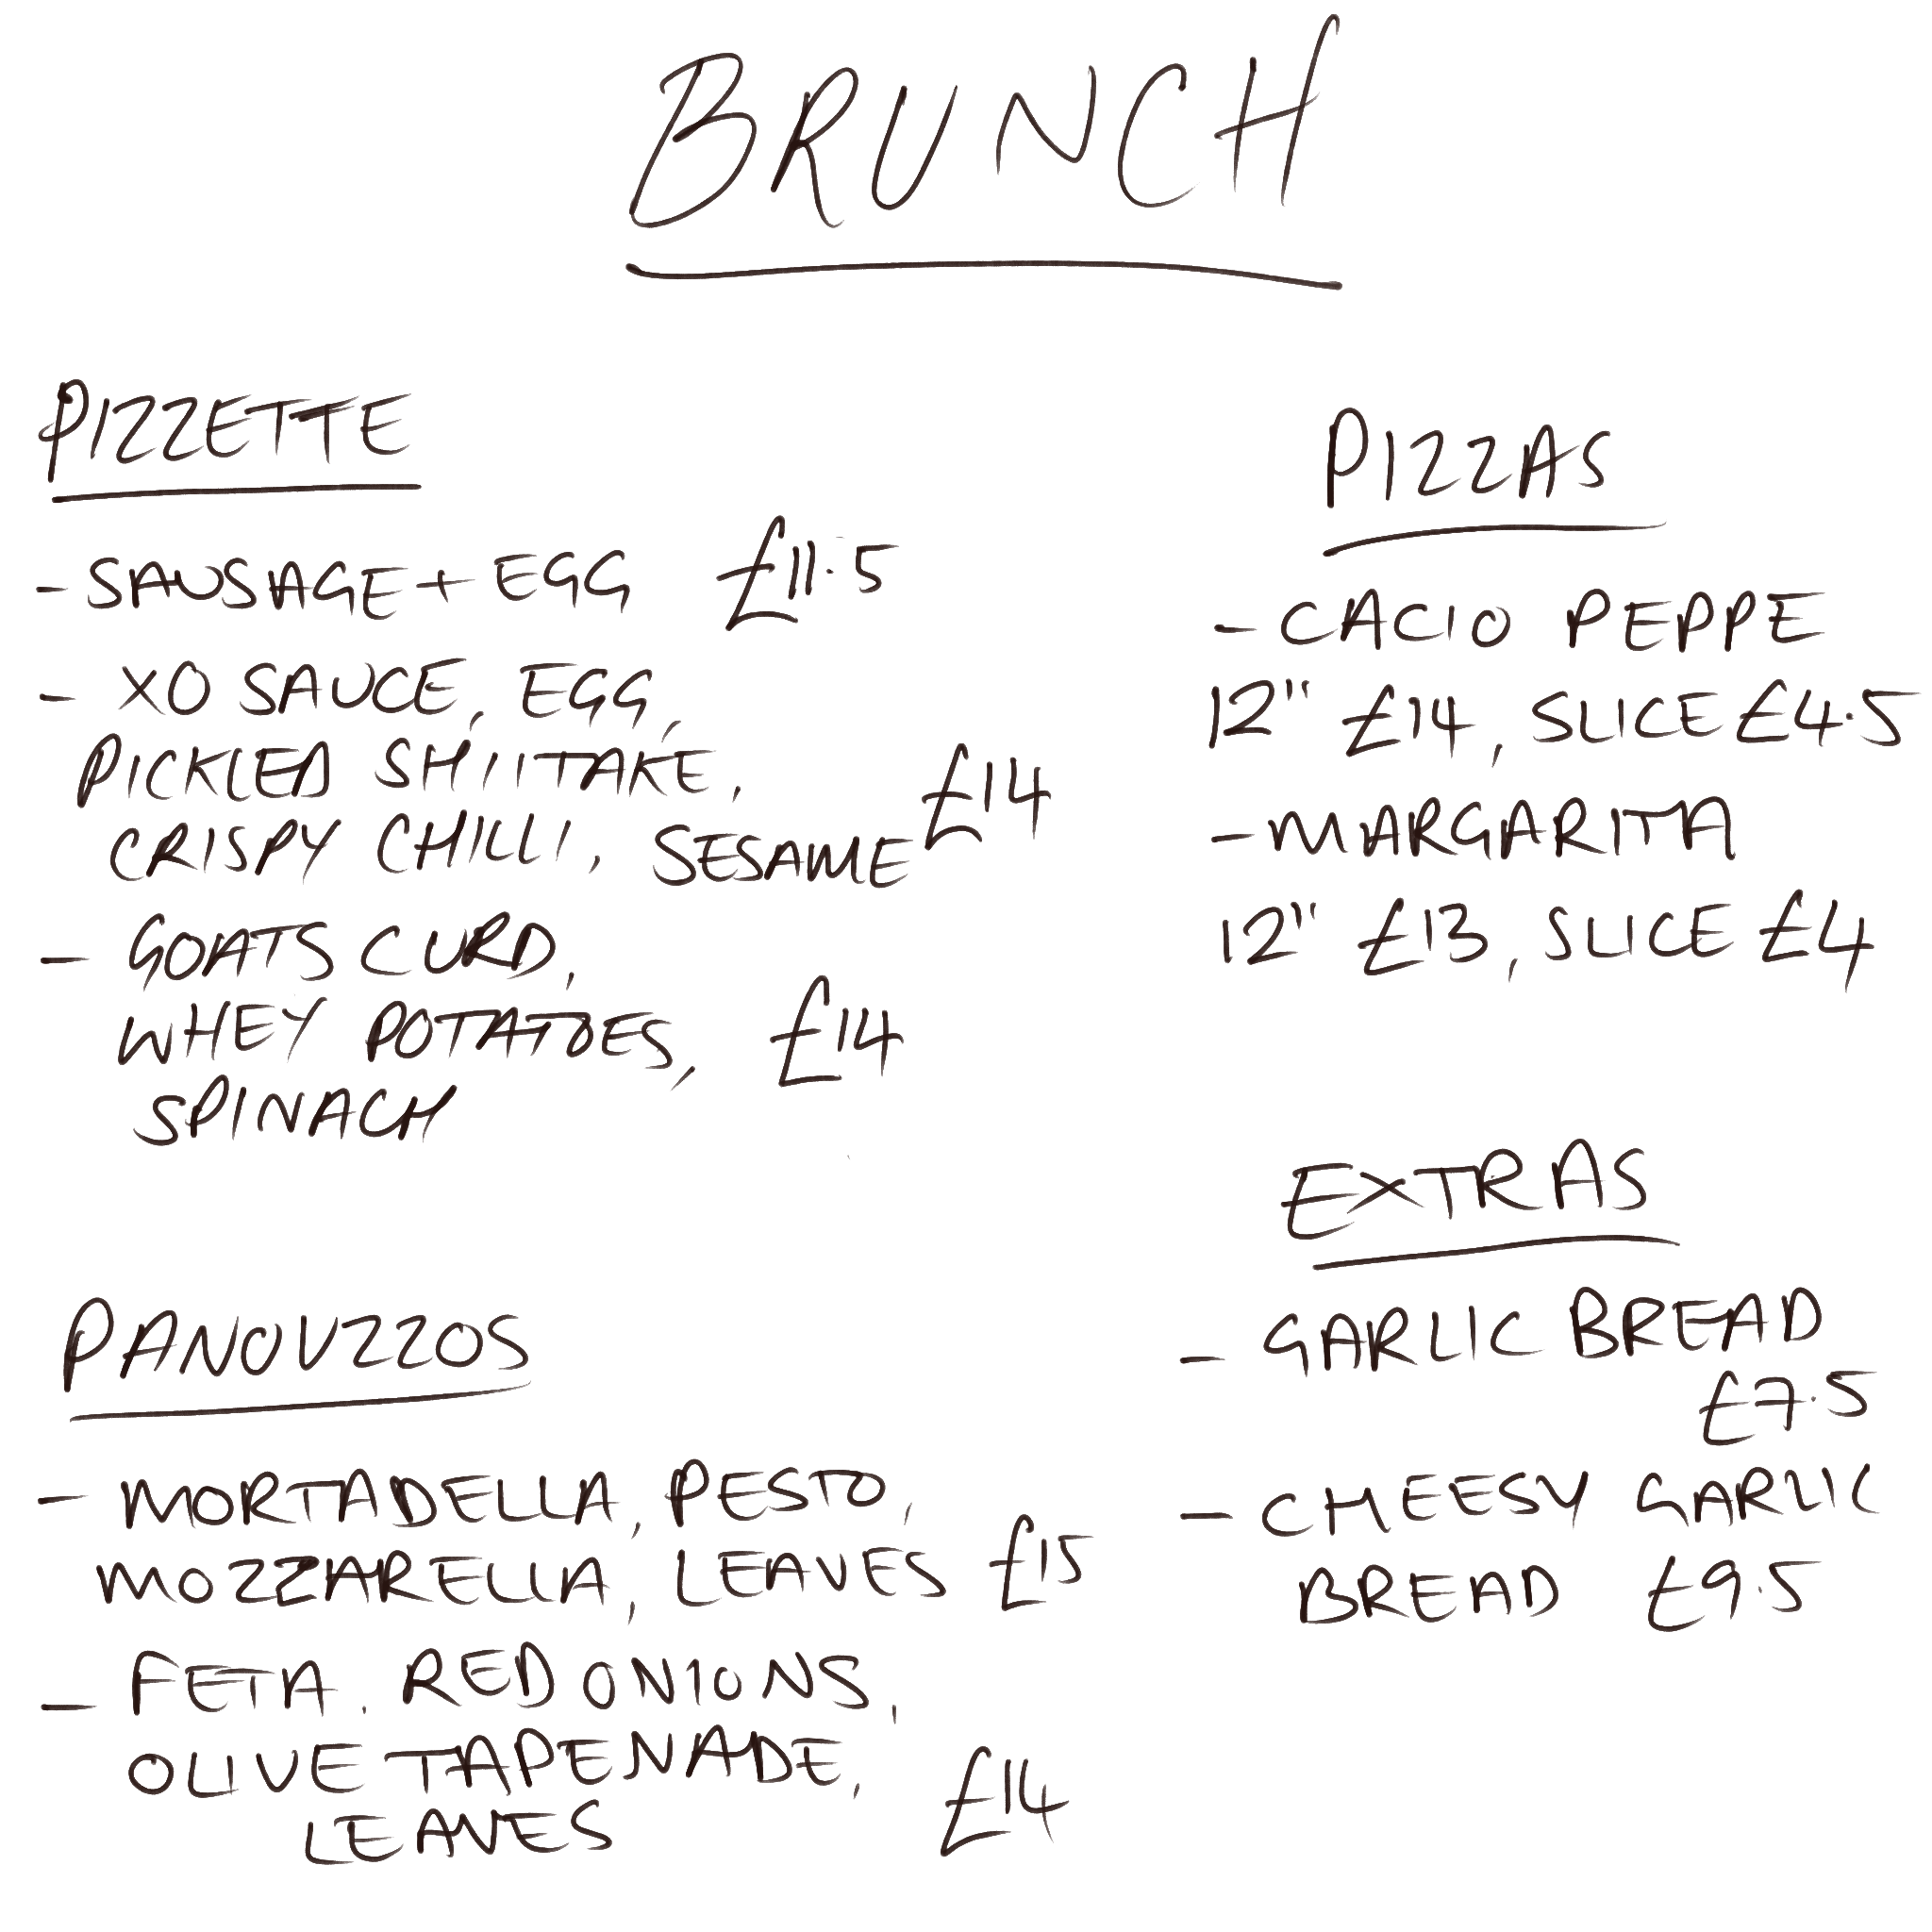 BRUNCH
PIZZETTE
- SAUSAGE + EGG £11.5
- XO SAUCE, EGG,
PICKLED SHIITAKE,
CRISPY CHILLI, SESAME £14
- GOATS CURD,
WHEY POTATOES, £14
SPINACH
PANOUZZOS
- MORTADELLA, PESTO,
MOZZARELLA, LEAVES £15
- FETA, RED ONIONS,
OLIVE TAPENADE,
LEAVES £14
PIZZAS
- CACIO PEPPE
12" £14, SLICE £4.5
- MARGARITA
12" £13, SLICE £4
EXTRAS
- GARLIC BREAD
£7.5
- CHEESY GARLIC
BREAD £9.5